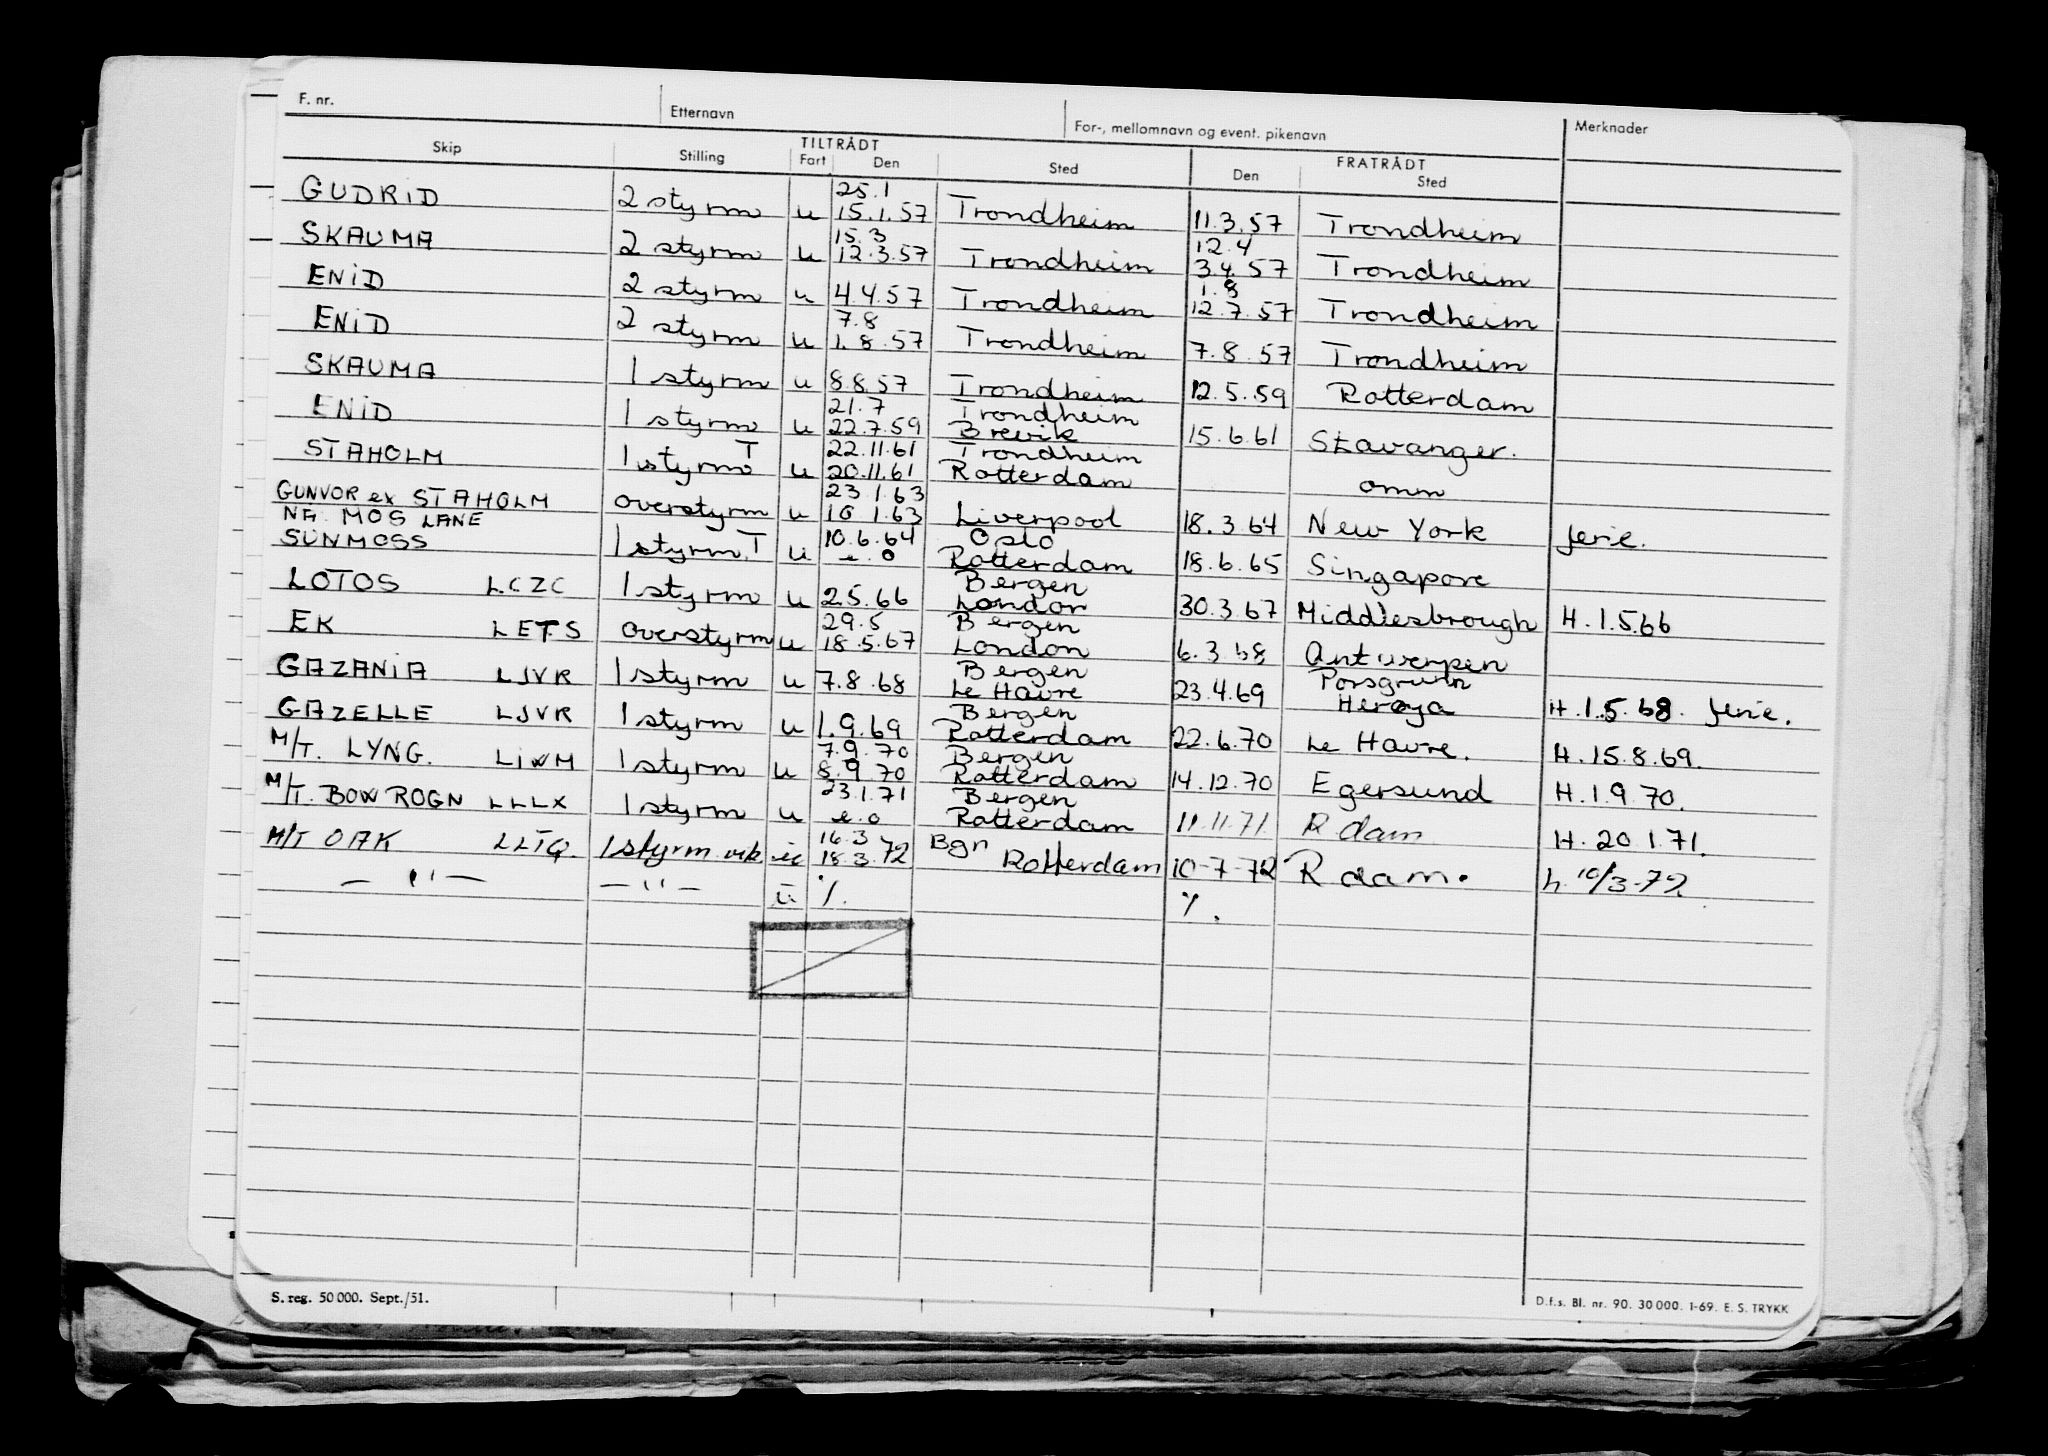 F. nr. Etternavn For-, mellomnavn og event. pikenavn Merknader
TILTRÅDT FRATRÅDT
Skip Stilling Fart Den Sted Den Sted
25.1
GUDRID 2 styrm u 15.1.57 Trondheim 11.3.57 Trondheim
15.3 12.4
SKAUMA 2 styrm u 12.3.57 Trondheim 3.4.57 Trondheim
1.8
ENID 2 styrm u 4.4.57 Trondheim 12.7.57 Trondheim
7.8
ENID 2 styrm u 1.8.57 Trondheim 7.8.57 Trondheim
SKAUMA 1 styrm u 8.8.57 Trondheim 12.5.59 Rotterdam
21.7 Trondheim
ENID 1 styrm u 22.7.59 Brevik 15.6.61 Stavanger.
T 22.11.61 Trondheim
STAHOLM 1 styrm u 20.11.61 Rotterdam omm
23 1.63
GUNVOR ex STAHOLM overstyrm u 10 1.63 Liverpool 18.3.64 New York ferie.
NÅ MOS LANE
10.6.64 Oslo
SUNMOSS 1 styrm. T u e.o Rotterdam 18.6.65 Singapore
Bergen
LOTOS LCZC 1 styrm u 2.5.66 London 30.3.67 Middlesbrough H.1.5.66
29.5 Bergen
EK LETS overstyrm u 18.5.67 London 6.3.68 Antwerpen
Bergen Porsgrunn
GAZANIA LJVR 1 styrm u 7.8.68 Le Havre 23.4.69 Herøya H.1.5.68. ferie.
Bergen
GAZELLE LJVR 1 styrm u 1.9.69 Rotterdam 22.6.70 Le Havre. H.15.8.69.
7.9.70 Bergen
M/T. LYNG. LIWM 1 styrm u 8.9.70 Rotterdam 14.12.70 Egersund H.1.9.70.
23.1.71 Bergen
M/T. BOW ROGN LLLX 1 styrm u e.o Rotterdam 11.11.71 R dam H.20.1.71.
16.3 Bgn
M/T OAK LLTQ. 1 styrm vik u 18.3.72 Rotterdam 10-7-72 R dam. h. 10/3-72
— " — — " — u %. %.
S. reg. 50 000. Sept./51. D.f.s. Bl. nr. 90. 30 000. 1-69. E. S. TRYKK